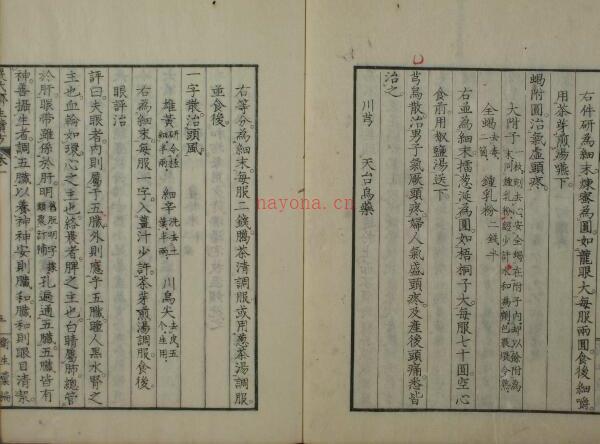 右件研為細末煉蜜為圓如龍眼大每服兩圓食後細嚼
用茶芽煎湯嚥下
蝎附圓治氣虛頭疼
大附子一枚剜去心安全蝎在附子內却以餘附為末同鍾乳粉麪少許水和為劑包裹煨令熟
全蝎去毒三箇 鍾乳粉二錢半
右並為細末搗葱涎為圓如梧桐子大每服七十圓空心
食前用椒鹽湯送下
芎烏散治男子氣厥頭疼婦人氣盛頭疼及產後頭痛悉皆
治之
川芎 天台烏藥
右等分為細末每服二錢臈茶清調服或用葱茶湯調服
並食後
一字散治頭風
雄黃研令極細半兩 細辛洗去土葉半兩 川烏尖去皮五个生用
右為細末每服一字入薑汁少許茶芽煎湯調服食後
眼評治
評曰夫眼者內則屬乎五臟外則應乎五臟瞳人黑水腎之
主也血輪如環心之主也絡裹者脾之主也白睛屬肺總管
於肝眼帶雖係於肝明孔遍通五臟五臟皆有
神善攝生者調五臟以養神神安則臟和臟和則眼目清潔
nayona.cn